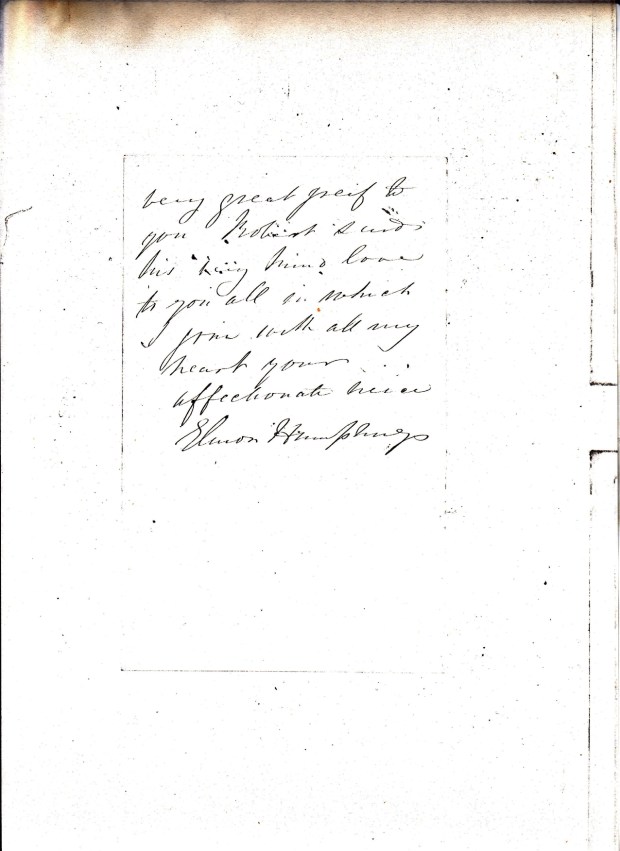 very great greif to
you Robert sends
his very kind love
to you all in which
I join with all my
heart your
affectionate neice
Humphreys